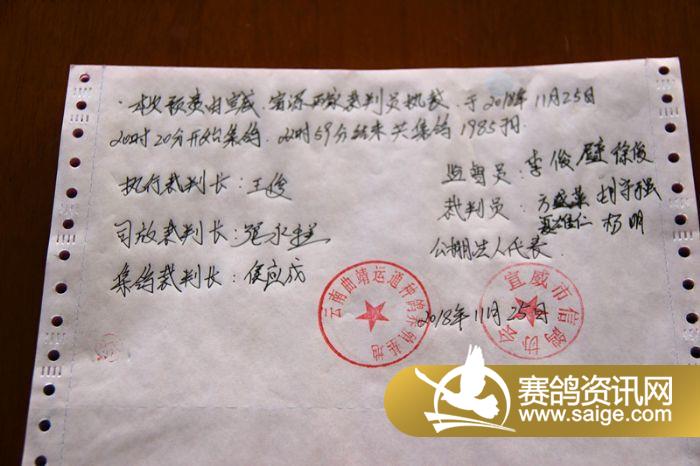 本次预赛由宣威、富源两家裁判员执裁、于2018年11月25日
20时20分开始集鸽、22时59分结束共集鸽1985羽.
执行裁判长：王俊
司放裁判长：
集鸽裁判长：侯应成
监督员：李俊 徐俊
裁判员：方盛荣
夏雄仁 杨明
公棚法人代表
2018年11月25日
云南曲靖运通种鸽养殖基地
宣威市信鸽协会
赛鸽资讯网
www.saige.com